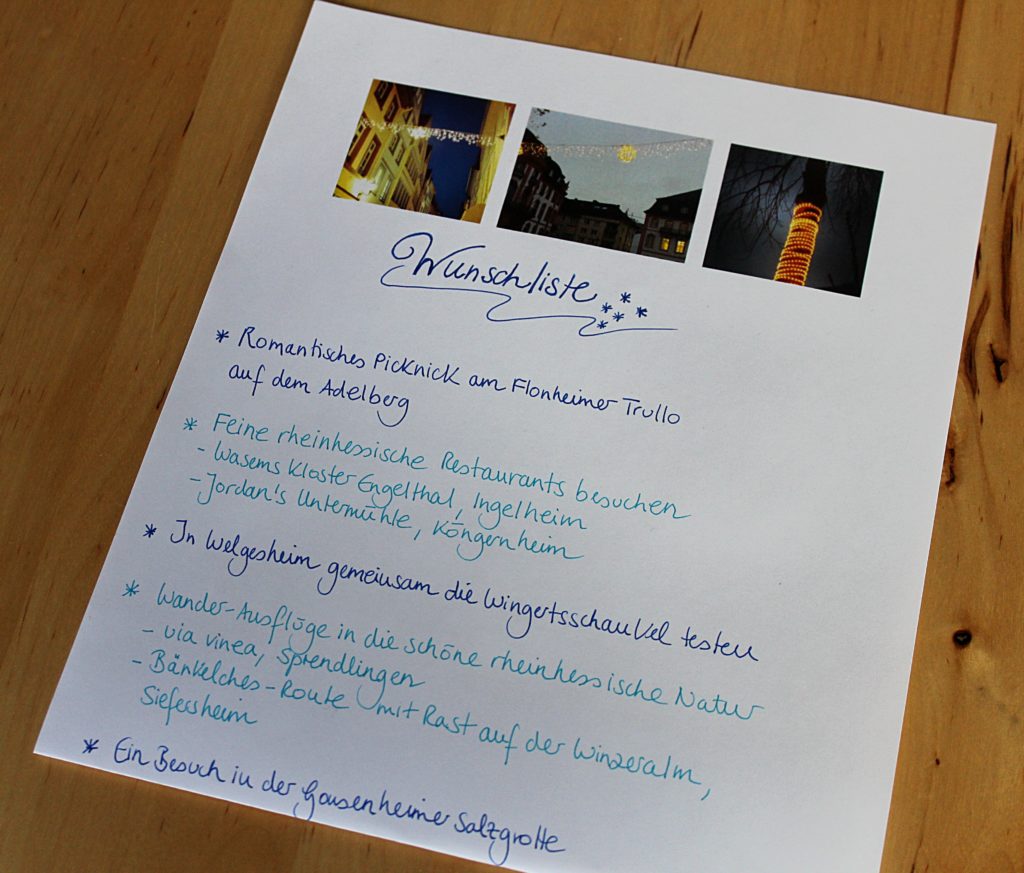 Wunschliste
* Romantisches Picknick am Flonheimer Trullo
auf dem Adelberg
* Feine rheinhessische Restaurants besuchen
- Wasems Kloster Engelthal, Ingelheim
- Jordan's Untermühle, Köngernheim
* In Welgesheim gemeinsam die Wingertsschaukel testen
* Wander-Ausflüge in die schöne rheinhessische Natur
- via vinea, Sprendlingen
- Bänkelches-Route mit Rast auf der Winzeralm,
Siefersheim
* Ein Besuch in der Gonsenheimer Salzgrotte